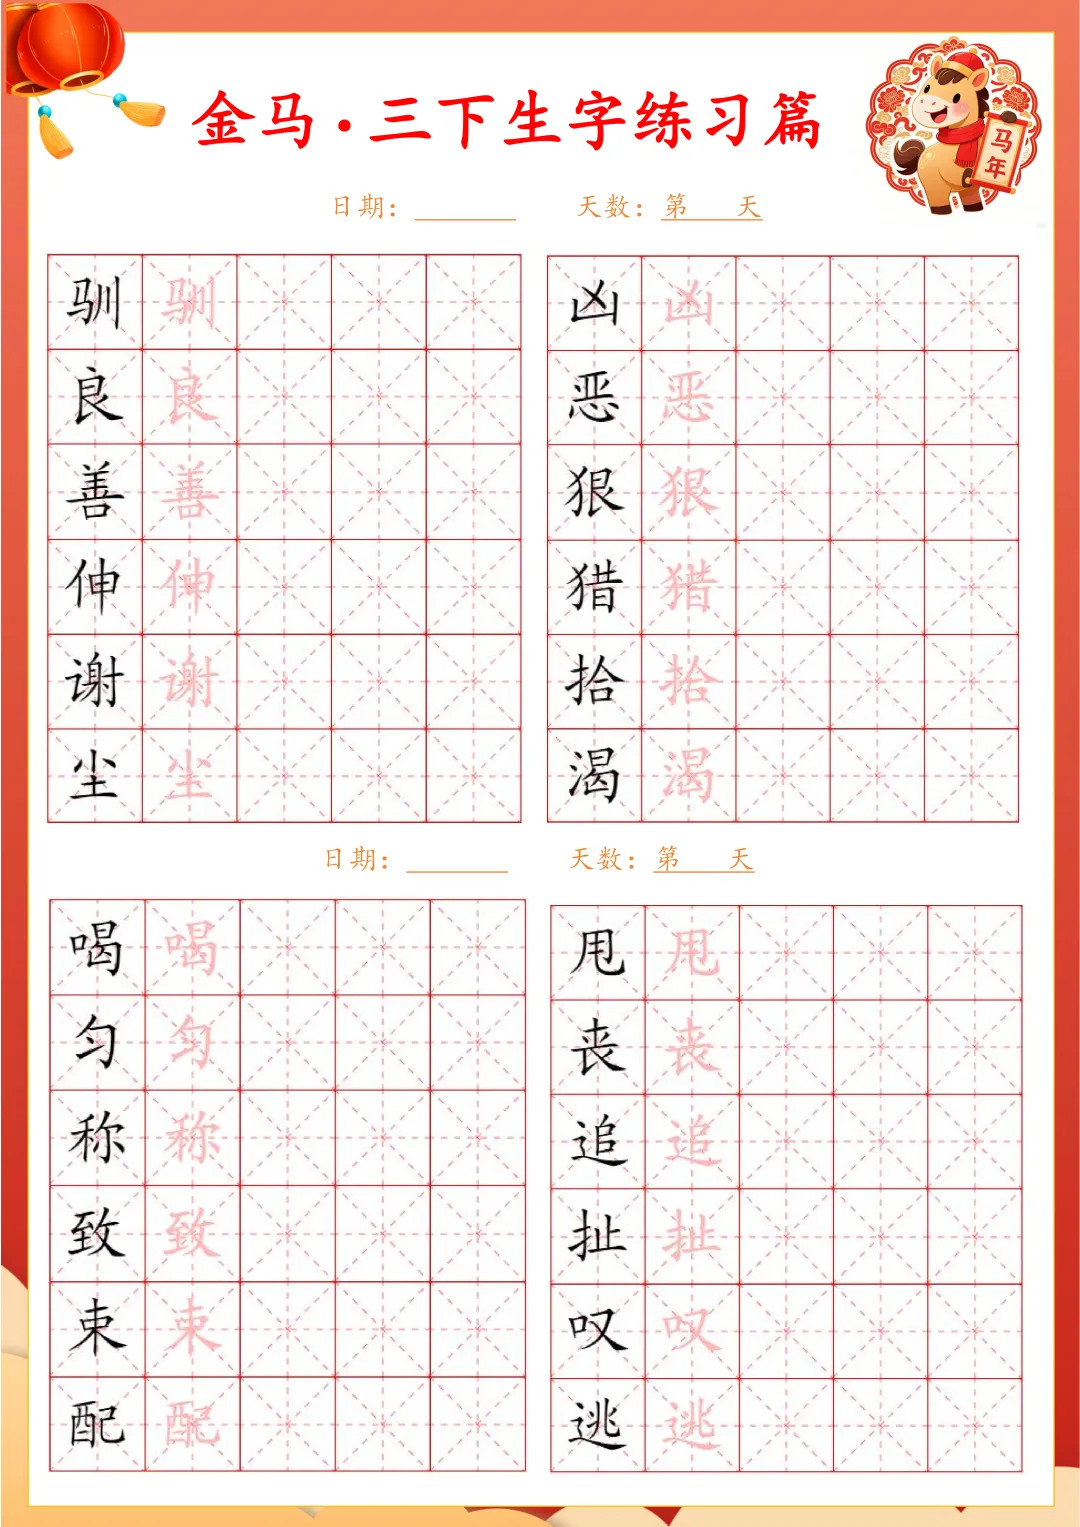 金马·三下生字练习篇
马年
日期：________ 天数：第 天
驯 驯 凶 凶
良 良 恶 恶
善 善 狠 狠
伸 伸 猎 猎
谢 谢 拾 拾
尘 尘 渴 渴
日期：________ 天数：第 天
喝 喝 甩 甩
匀 匀 丧 丧
称 称 追 追
致 致 扯 扯
束 束 叹 叹
配 配 逃 逃